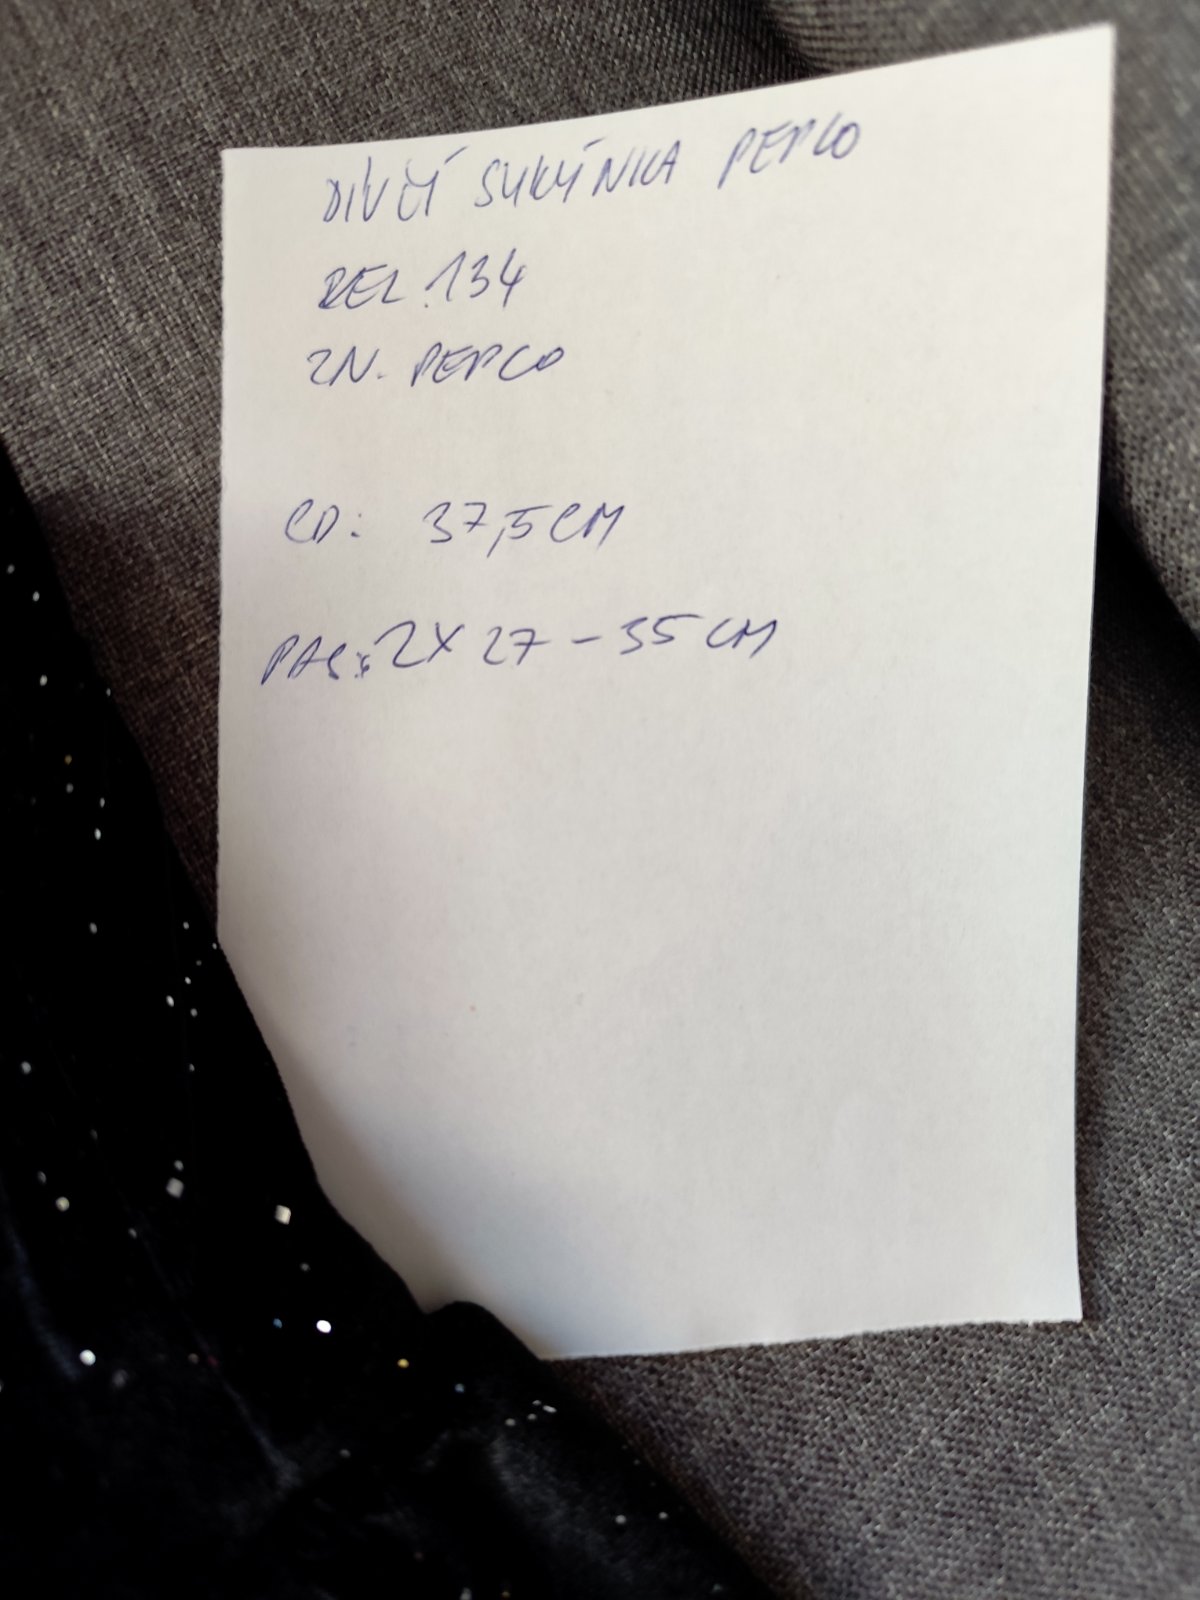 DÍVČÍ SUKÝNKA PEPCO
VEL. 134
ZN. PEPCO
CD: 37,5 CM
PAS: 2X 27 - 35 CM